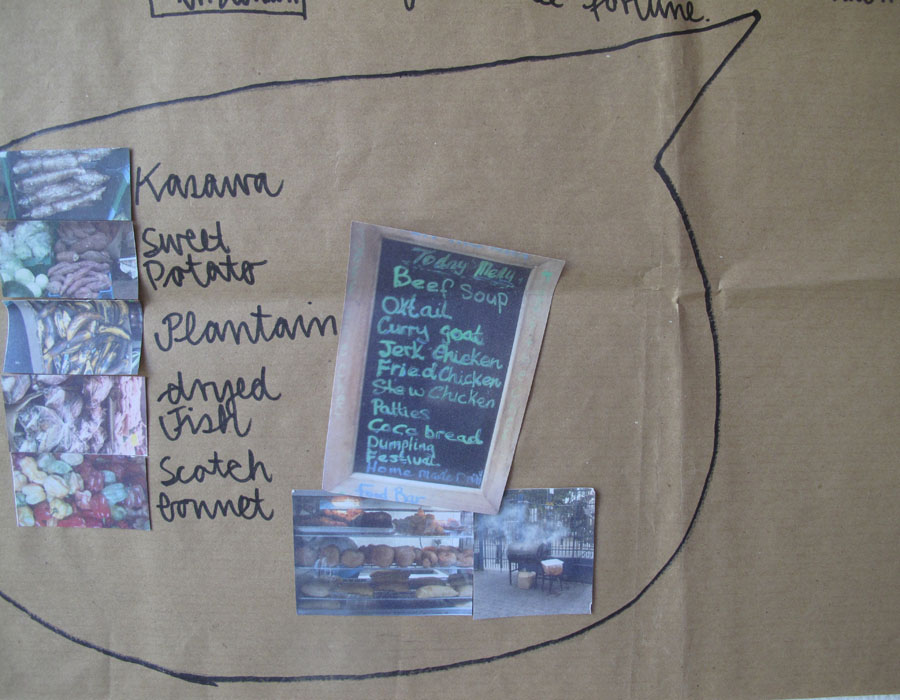 fortune.
Kasawa
Sweet
Potato
Plantain
dryed
Fish
Scotch
bonnet
Today Menu
Beef Soup
Oxtail
Curry goat
Jerk Chicken
Fried Chicken
Stew Chicken
Patties
Coco bread
Dumpling
Festival
Home made
Food Bar